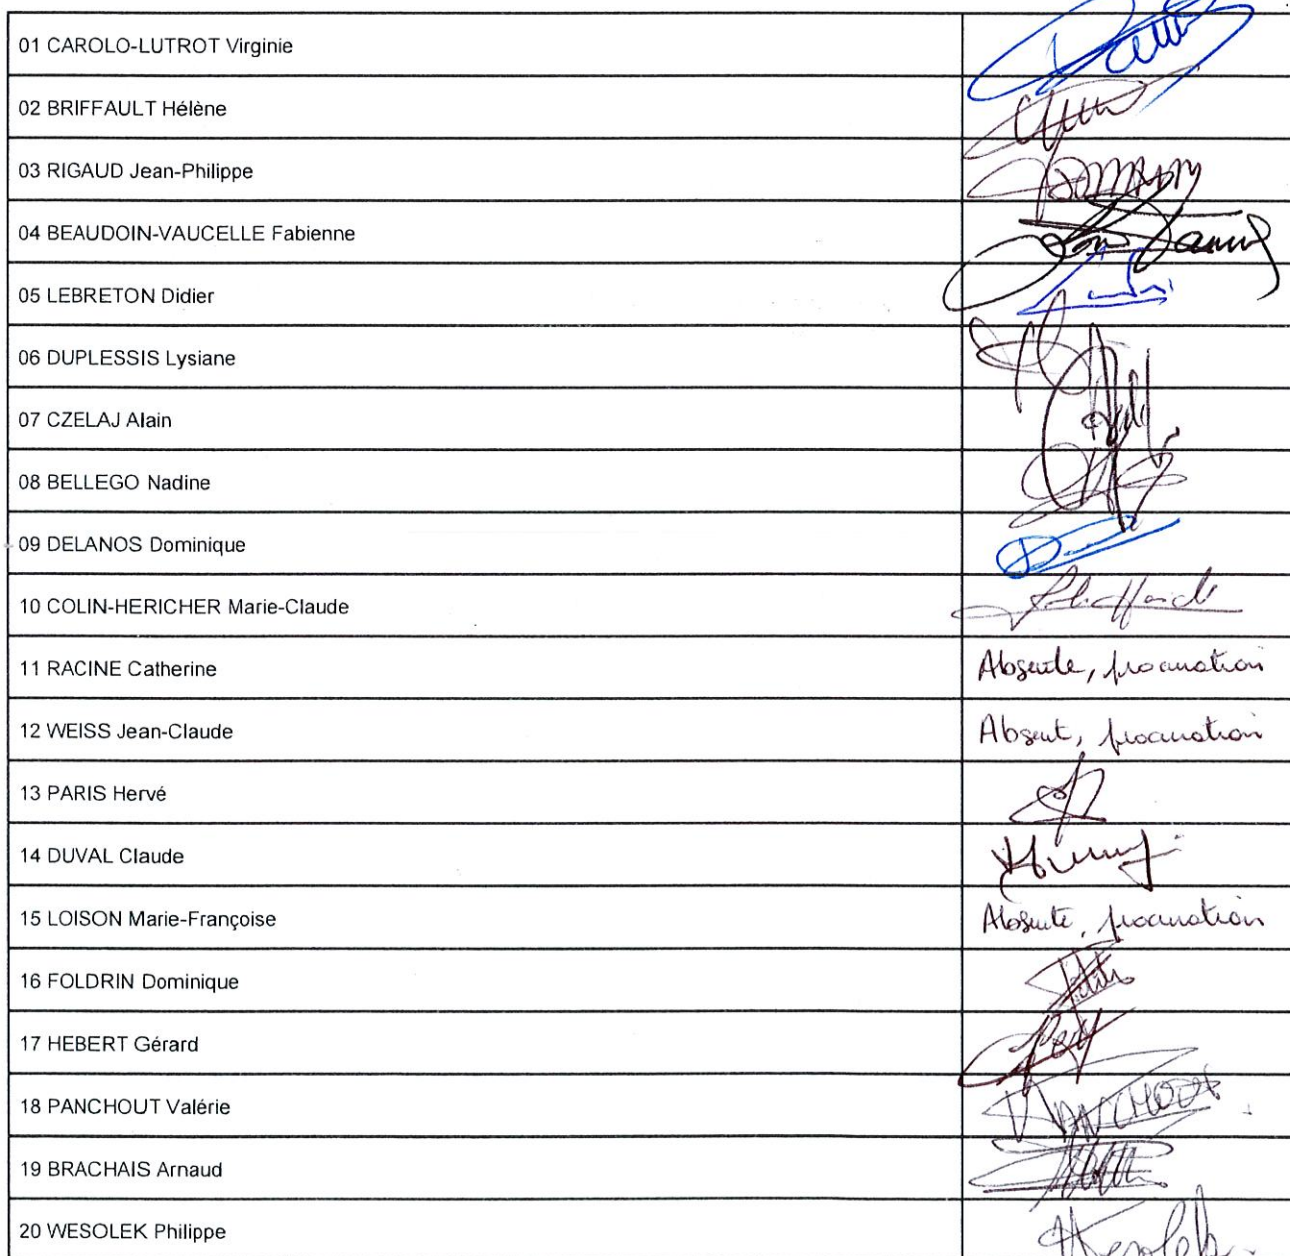 01 CAROLO-LUTROT Virginie
02 BRIFFAULT Hélène
03 RIGAUD Jean-Philippe
04 BEAUDOIN-VAUCELLE Fabienne
05 LEBRETON Didier
06 DUPLESSIS Lysiane
07 CZELAJ Alain
08 BELLEGO Nadine
09 DELANOS Dominique
10 COLIN-HERICHER Marie-Claude
11 RACINE Catherine Absente, procuration
12 WEISS Jean-Claude Absent, procuration
13 PARIS Hervé
14 DUVAL Claude
15 LOISON Marie-Françoise Absente, procuration
16 FOLDRIN Dominique
17 HEBERT Gérard
18 PANCHOUT Valérie
19 BRACHAIS Arnaud
20 WESOLEK Philippe